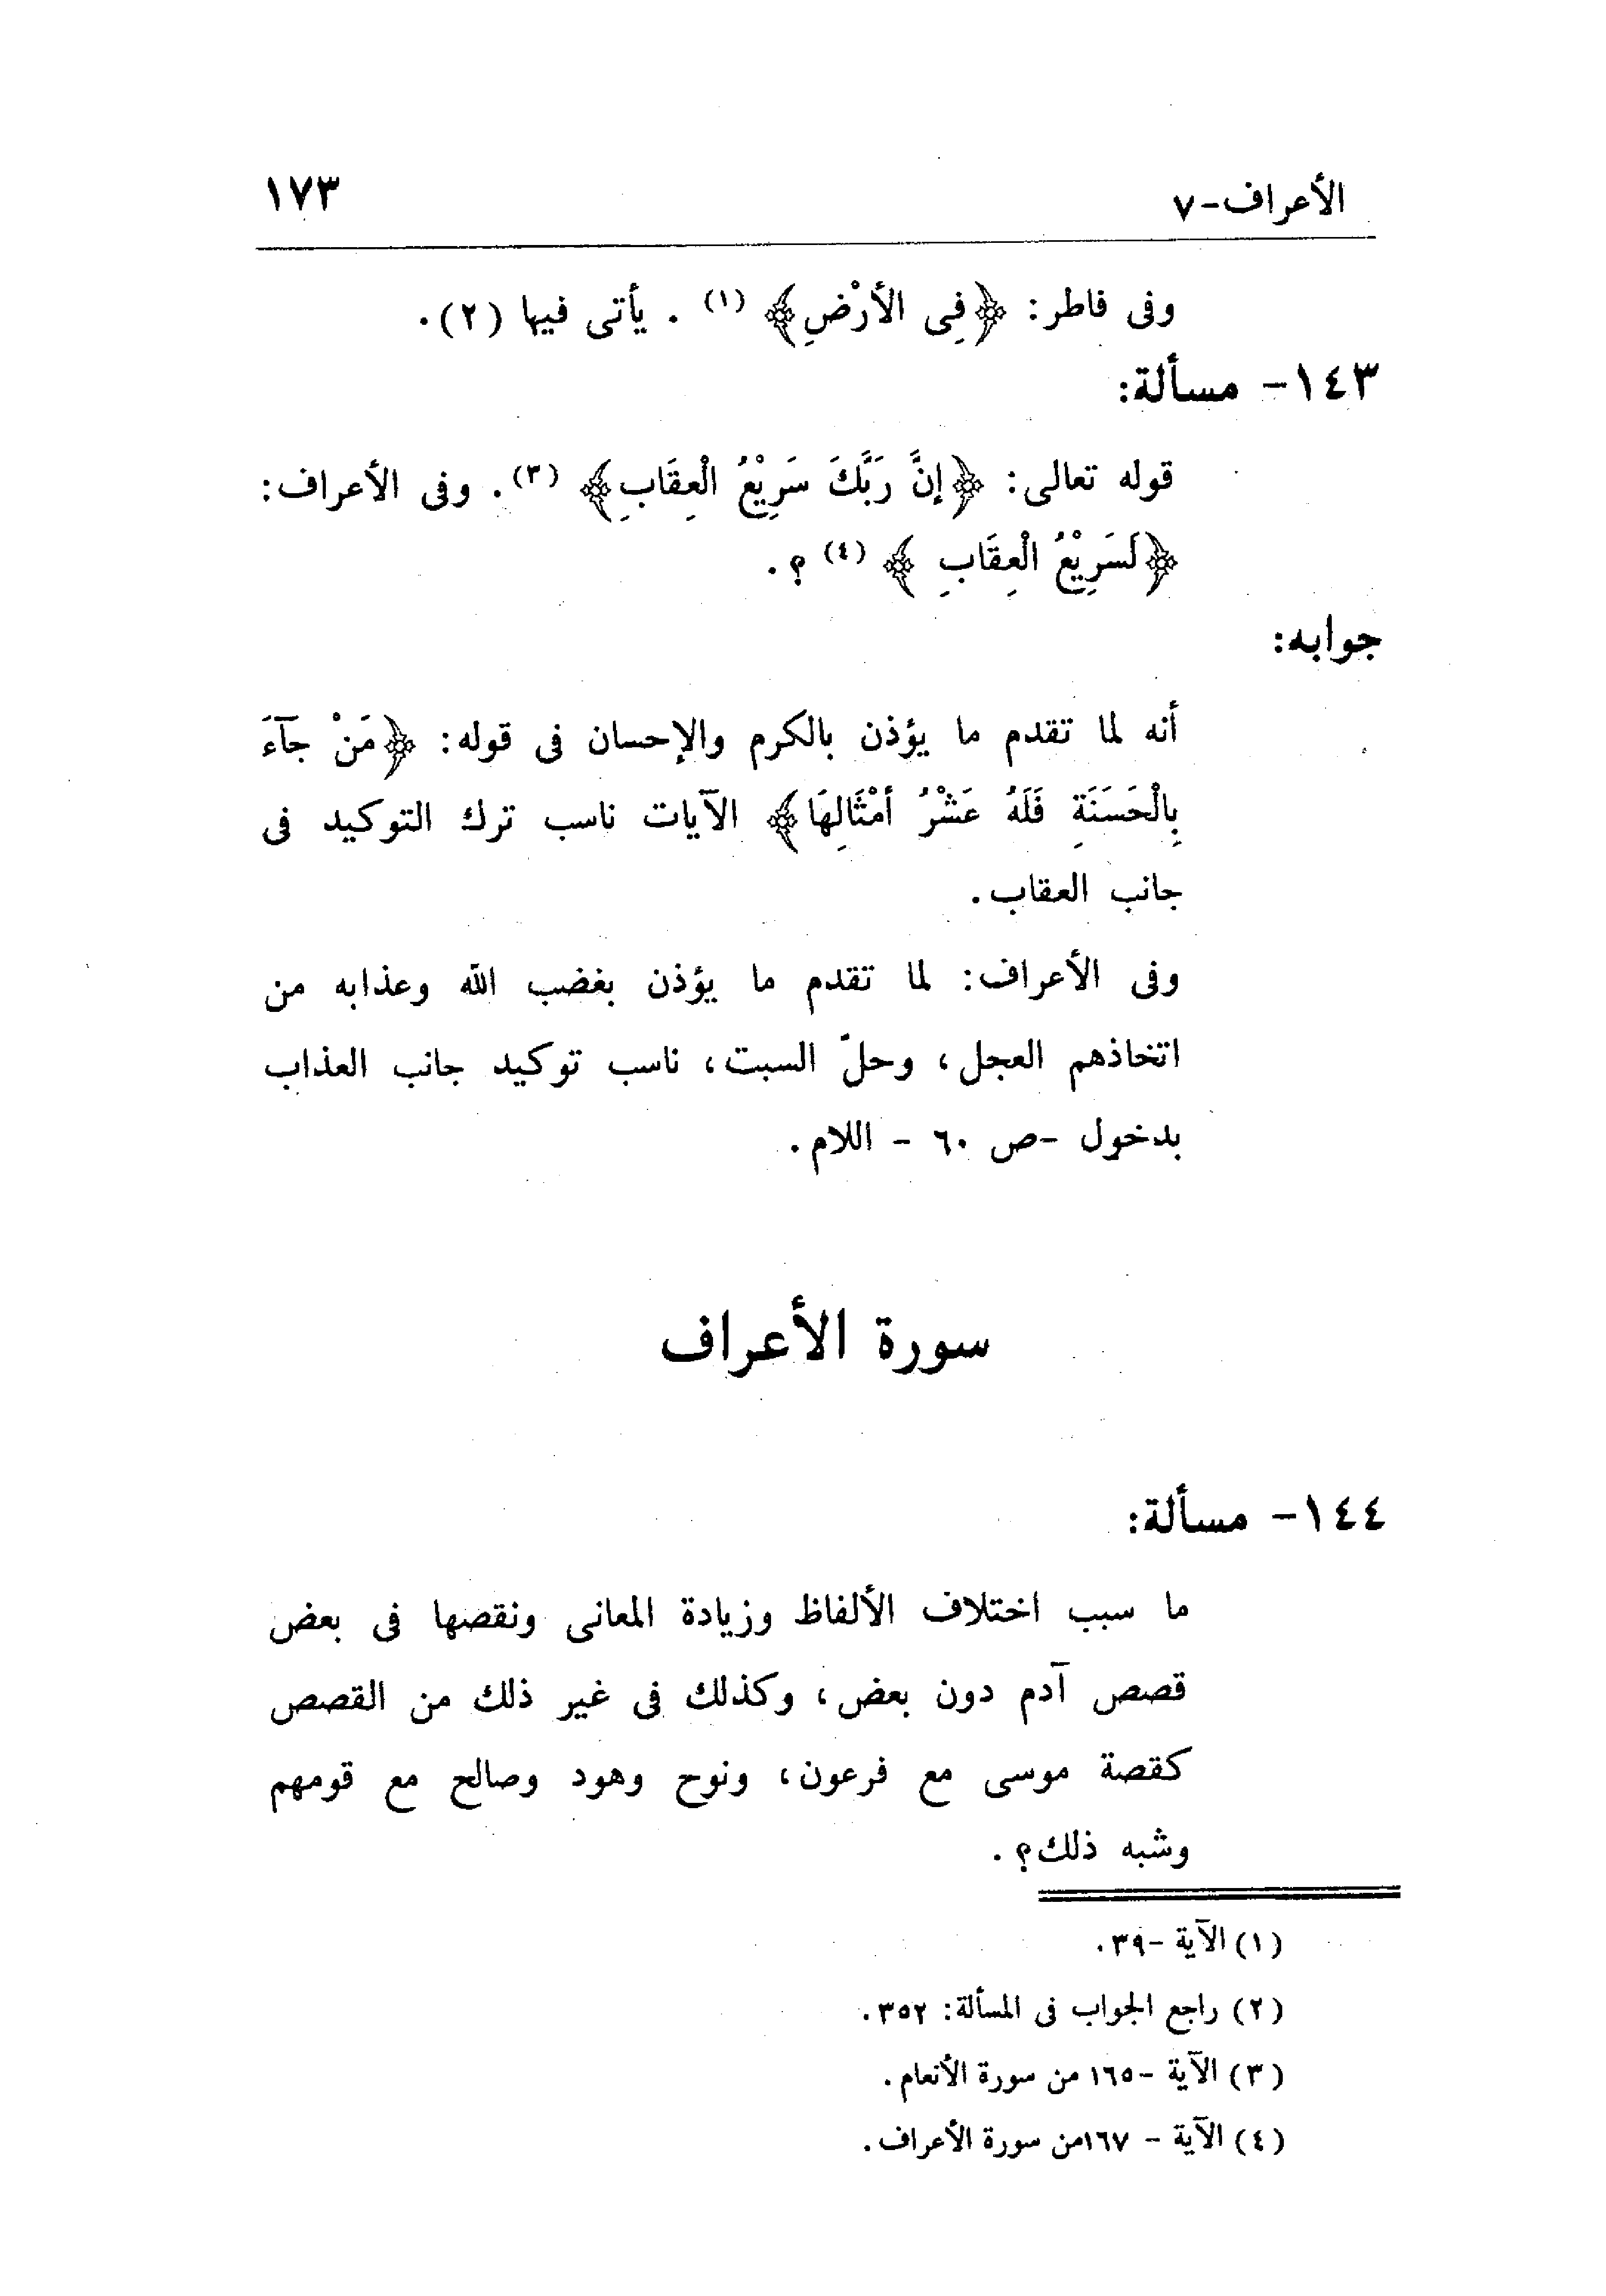 الأعراف-٧ ١٧٣
وفى فاطر: ﴿فِى الأَرْضِ﴾ (١) . يأتى فيها (٢).
١٤٣- مسألة:
قوله تعالى: ﴿إنَّ رَبَّكَ سَرِيْعُ الْعِقَابِ﴾ (٣). وفى الأعراف:
﴿لَسَرِيْعُ الْعِقَابِ ﴾ (٤) ؟.
جوابه:
أنه لما تقدم ما يؤذن بالكرم والإحسان فى قوله: ﴿مَنْ جَآءَ
بِالْحَسَنَةِ فَلَهُ عَشْرُ أمْثَالِهَا﴾ الآيات ناسب ترك التوكيد فى
جانب العقاب.
وفى الأعراف: لما تقدم ما يؤذن بغضب الله وعذابه من
اتخاذهم العجل، وحلّ السبت، ناسب توكيد جانب العذاب
بدخول -ص ٦٠ - اللام.
سورة الأعراف
١٤٤- مسألة:
ما سبب اختلاف الألفاظ وزيادة المعانى ونقصها فى بعض
قصص آدم دون بعض، وكذلك فى غير ذلك من القصص
كقصة موسى مع فرعون، ونوح وهود وصالح مع قومهم
وشبه ذلك؟.
(١) الآية -٣٩.
(٢) راجع الجواب فى المسألة: ٣٥٢.
(٣) الآية -١٦٥ من سورة الأنعام.
(٤) الآية - ١٦٧من سورة الأعراف.